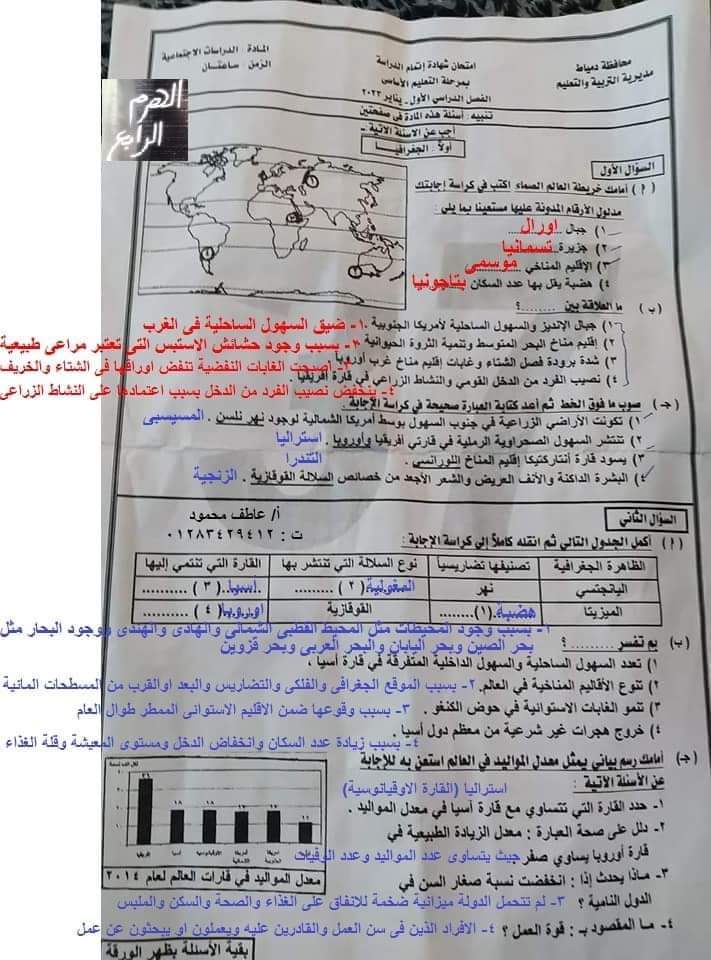 محافظة دمياط
مديرية التربية والتعليم
امتحان شهادة إتمام الدراسة
بمرحلة التعليم الأساسى
الفصل الدراسي الأول - يناير ٢٠٢٣
المادة : الدراسات الاجتماعية
الزمن : ساعتان
تنبيه : أسئلة هذه المادة فى صفحتين
أجب عن الاسئلة الآتية :-
أولاً : الجغرافيا
الهرم
الرابع
السؤال الأول
( أ ) أمامك خريطة العالم الصماء اكتب في كراسة إجابتك
مدلول الأرقام المدونة عليها مستعينا بما يلى :
١) جبال اورال
٢) جزيرة تسمانيا
٣) الإقليم المناخي موسمى
٤) هضبة يقل بها عدد السكان بتاجونيا
(ب) ما العلاقة بين ..........؟
١) جبال الإنديز والسهول الساحلية لأمريكا الجنوبية
١- ضيق السهول الساحلية فى الغرب
٢) إقليم مناخ البحر المتوسط وتنمية الثروة الحيوانية
بسبب وجود حشائش الاستبس التى تعتبر مراعى طبيعية
٣) شدة برودة فصل الشتاء وغابات إقليم مناخ غرب أوروبا
اصبحت الغابات النفضية تنفض اوراقها فى الشتاء والخريف
٤) نصيب الفرد من الدخل القومي والنشاط الزراعي في قارة أفريقيا .
٤- ينخفض نصيب الفرد من الدخل بسبب اعتمادها على النشاط الزراعى
(جـ) صوب ما فوق الخط ثم أعد كتابة العبارة صحيحة في كراسة الإجابة
١) تكونت الأراضي الزراعية في جنوب السهول بوسط أمريكا الشمالية لوجود نهر نلسن . المسيسبى
٢) تنتشر السهول الصحراوية الرملية في قارتي أفريقيا وأوروبا . استراليا
٣) يسود قارة أنتاركتيكا إقليم المناخ اللورانسي . التندرا
٤) البشرة الداكنة والأنف العريض والشعر الأجعد من خصائص السلالة القوقازية . الزنجية
أ/ عاطف محمود
ت : ٠١٢٨٣٤٢٩٤١٢
السؤال الثاني
( أ ) أكمل الجدول التالي ثم انقله كاملاً إلي كراسة الإجابة :
الظاهرة الجغرافية تصنيفها تضاريسياً نوع السلالة التي تنتشر بها القارة التي تنتمي إليها
اليانجتسي نهر ( ٢ ) المغولية ( ٣ ) اسيا
الميزيتا (١) هضبة القوقازية ( ٤ ) اوروبا
(ب) بم تفسر ..........؟
١- بسبب وجود المحيطات مثل المحيط القطبى الشمالى والهادى والهندى ووجود البحار مثل
بحر الصين وبحر اليابان والبحر العربى وبحر قزوين
١) تعدد السهول الساحلية والسهول الداخلية المتفرقة في قارة أسيا .
٢) تنوع الأقاليم المناخية في العالم. ٢- بسبب الموقع الجغرافى والفلكى والتضاريس والبعد اوالقرب من المسطحات المائية
٣) تنمو الغابات الاستوائية في حوض الكنغو . ٣- بسبب وقوعها ضمن الاقليم الاستوائى الممطر طوال العام
٤) خروج هجرات غير شرعية من معظم دول أسيا .
٤- بسبب زيادة عدد السكان وانخفاض الدخل ومستوى المعيشة وقلة الغذاء
(جـ) أمامك رسم بياني يمثل معدل المواليد في العالم استعن به للإجابة
عن الأسئلة الآتية :
استراليا (القارة الاوقيانوسية)
١- حدد القارة التي تتساوي مع قارة أسيا في معدل المواليد .
٢- دلل على صحة العبارة : معدل الزيادة الطبيعية في
قارة أوروبا يساوي صفر حيث يتساوى عدد المواليد وعدد الوفيات
٣- ماذا يحدث إذا : انخفضت نسبة صغار السن في
الدول النامية ؟ ٣- لم تتحمل الدولة ميزانية ضخمة للانفاق على الغذاء والصحة والسكن والملبس
٤- ما المقصود بـ : قوة العمل ؟ ٤- الافراد الذين فى سن العمل والقادرين عليه ويعملون او يبحثون عن عمل
معدل المواليد في قارات العالم لعام ٢٠١٤
بقية الأسئلة بظهر الورقة